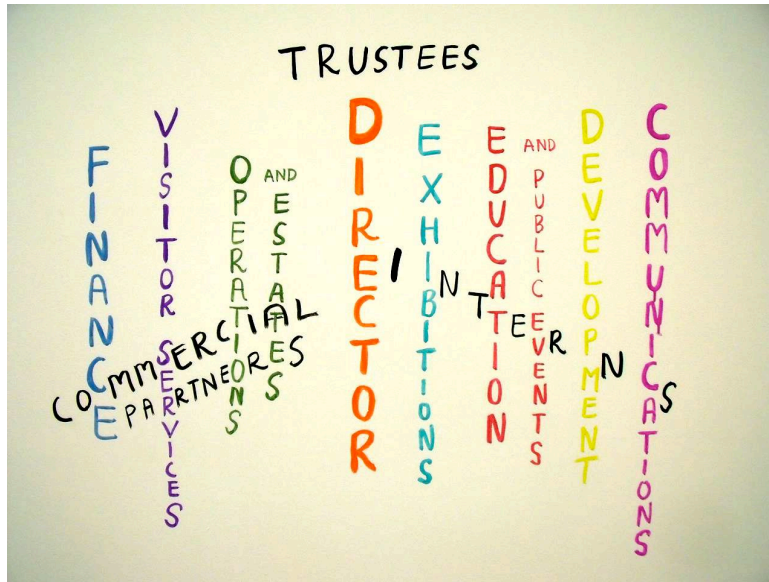 TRUSTEES
FINANCE
VISITOR SERVICES
OPERATIONS
AND ESTATES
DIRECTOR
EXHIBITIONS
EDUCATION
AND PUBLIC EVENTS
DEVELOPMENT
COMMUNICATIONS
COMMERCIAL
PARTNEORES
INTERNS